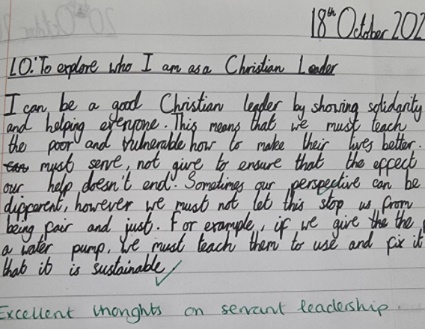 18th October 202
LO: To explore who I am as a Christian Leader
I can be a good Christian leader by showing solidarity
and helping everyone. This means that we must teach
the poor and vulnerable how to make their lives better.
must serve, not give to ensure that the effect
our help doesn't end. Sometimes our perspective can be
different, however we must not let this stop us from
being fair and just. For example, if we give the the
a water pump, we must teach them to use and fix it
that it is sustainable
Excellent thoughts on servant leadership.